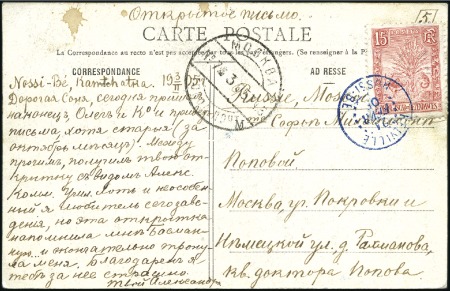 Открытое письмо.
151
CARTE POSTALE
La Correspondance au recto n'est pas acceptée par tous les pays étrangers. (Se renseigner à la Poste)
CORRESPONDANCE
ADRESSE
15
МОСКВА
Nossi-Bé, Kamchatka, 19 3/II 05
Russie, Moscou
Дорогая Соня, сегодня пришли
наконец, Олег и Ко и
письма, хотя старыя (за
октябрь месяц). Между
прочим, получил твою от-
крытку с видом Алекс.
Хоть и не особен-
ный я любитель сего заве-
дения, но эта открытка
напомнила мне Басман-
ную... и окончательно трону-
ла меня. Благодарен я
тебе за нее страшно.
Твой Александр
Софье
Поповой
Москва, уг. Покровки и
Нѣмецкой ул. д. Рахманова,
кв. доктора Попова.